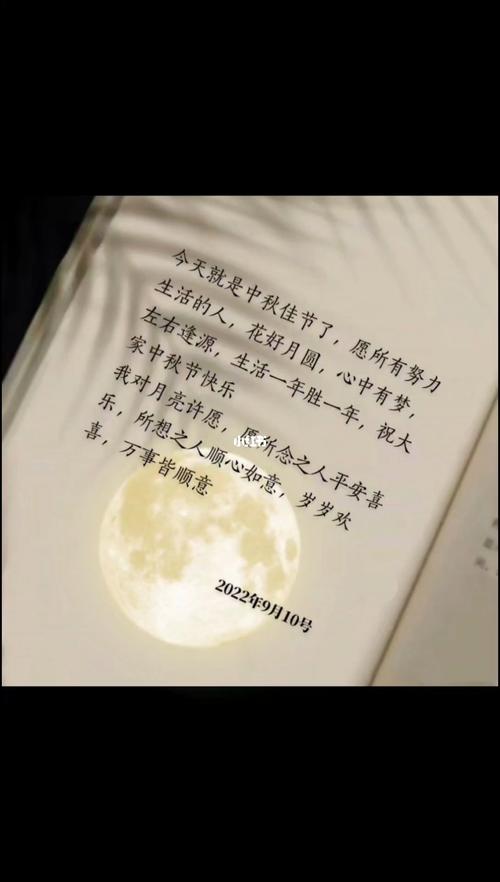 今天就是中秋佳节了，愿所有努力
生活的人，花好月圆，心中有梦，
左右逢源，生活一年胜一年，祝大
家中秋节快乐
我对月亮许愿，愿所念之人平安喜
乐，所想之人顺心如意，岁岁欢
喜，万事皆顺意
小红书
2022年9月10号